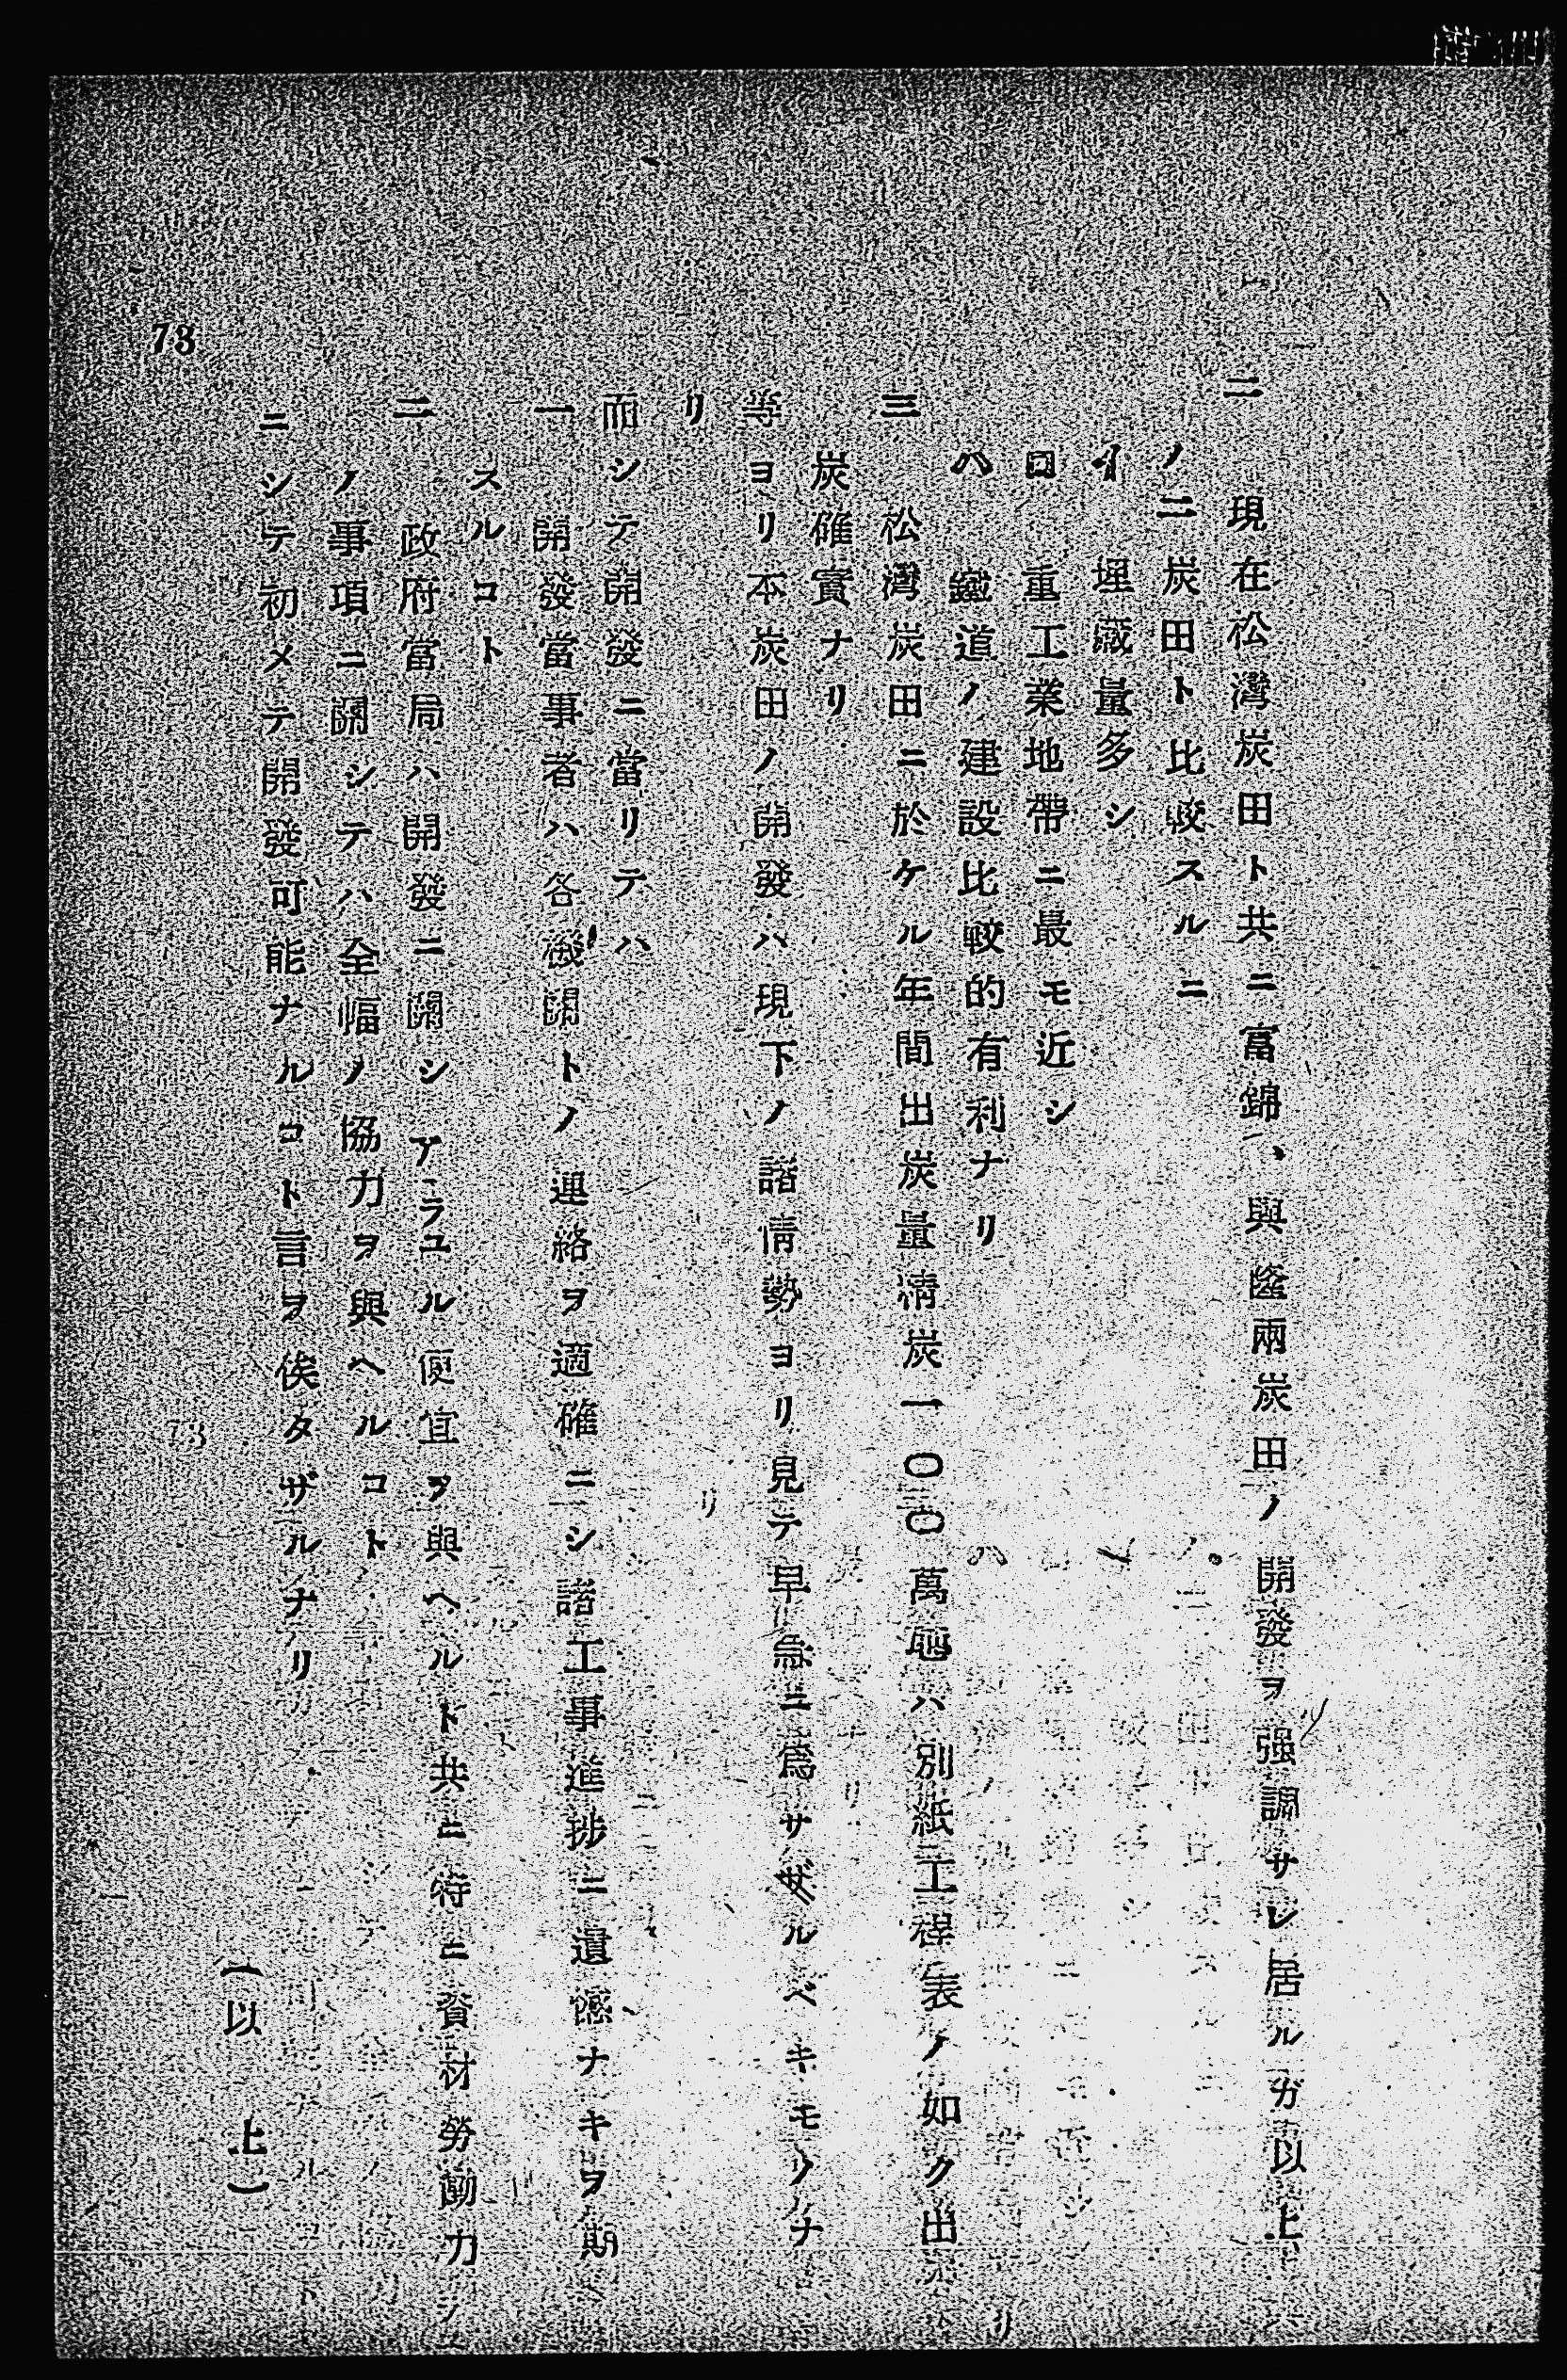 二　現在松灣炭田ト共ニ富錦、興隆兩炭田ノ開發ヲ强調サレ居ルガ以上
ノ二炭田ト比較スルニ
イ　埋藏量多シ
ロ　重工業地帶ニ最モ近シ
ハ　鐵道ノ建設比較的有利ナリ
三　松灣炭田ニ於ケル年間出炭量淸炭一〇〇萬瓲ハ別紙工程表ノ如ク出
炭確實ナリ
等ヨリ本炭田ノ開發ハ現下ノ諸情勢ヨリ見テ早急ニ爲サザルベキモノナ
リ
而シテ開發ニ當リテハ
一　開發當事者ハ各機關トノ連絡ヲ適確ニシ諸工事進捗ニ遺憾ナキヲ期
スルコト
二　政府當局ハ開發ニ關シアラユル便宜ヲ與ヘルト共ニ特ニ資材勞働力
ノ事項ニ關シテハ全幅ノ協力ヲ與ヘルコト
ニシテ初メテ開發可能ナルコト言ヲ俟タザルナリ
(以上)
73
73